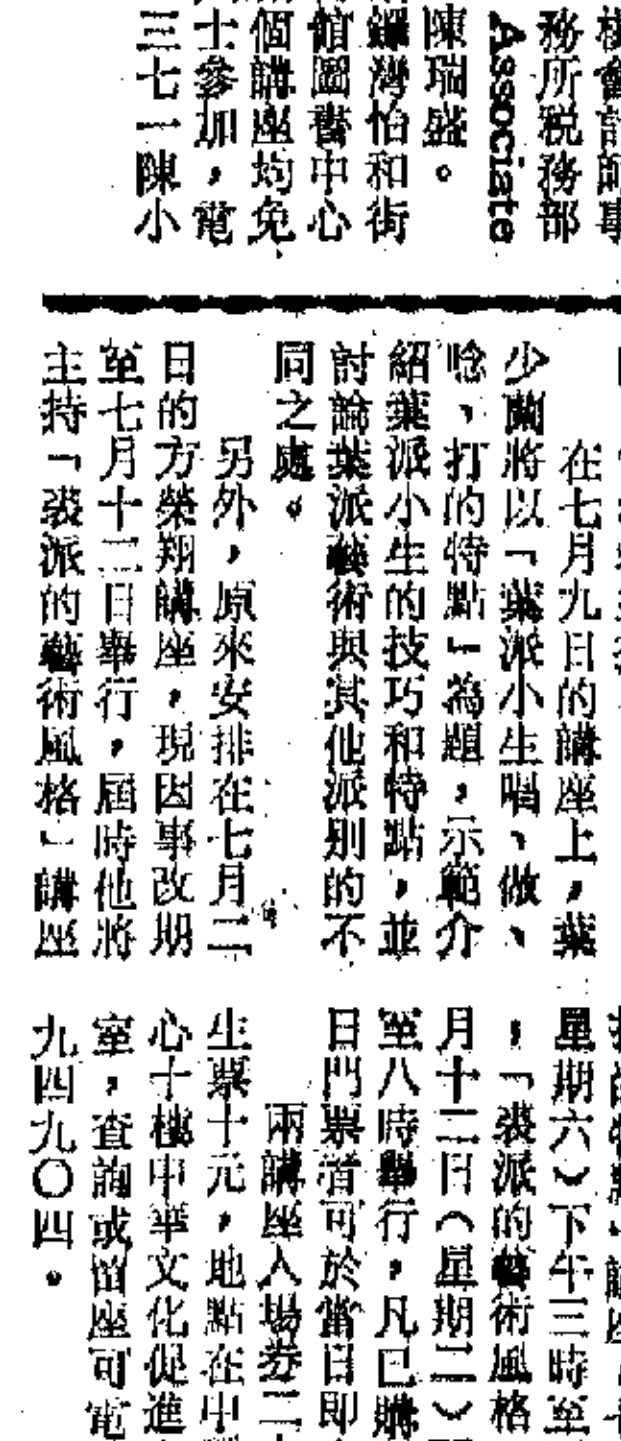 務所税務部
Associate
陳瑞盛。
灣怡和街
館圖書中心
個講座均免
士參加，電
三七一陳小
在七月九日的講座上，葉
少蘭將以「葉派小生唱、做、
唸、打的特點」為題，示範介
紹葉派小生的技巧和特點，並
討論葉派藝術與其他派別的不
同之處。
另外，原來安排在七月二
日的方榮翔講座，現因事改期
至七月十二日舉行，屆時他將
主持「裘派的藝術風格」講座
星期六）下午三時至
，「裘派的藝術風格
月十二日（星期二）
至八時舉行，凡已購
日門票者可於當日即
兩講座入場券二
生票十元，地點在中
心十樓中華文化促進
室，查詢或留座可電
九四九〇四。